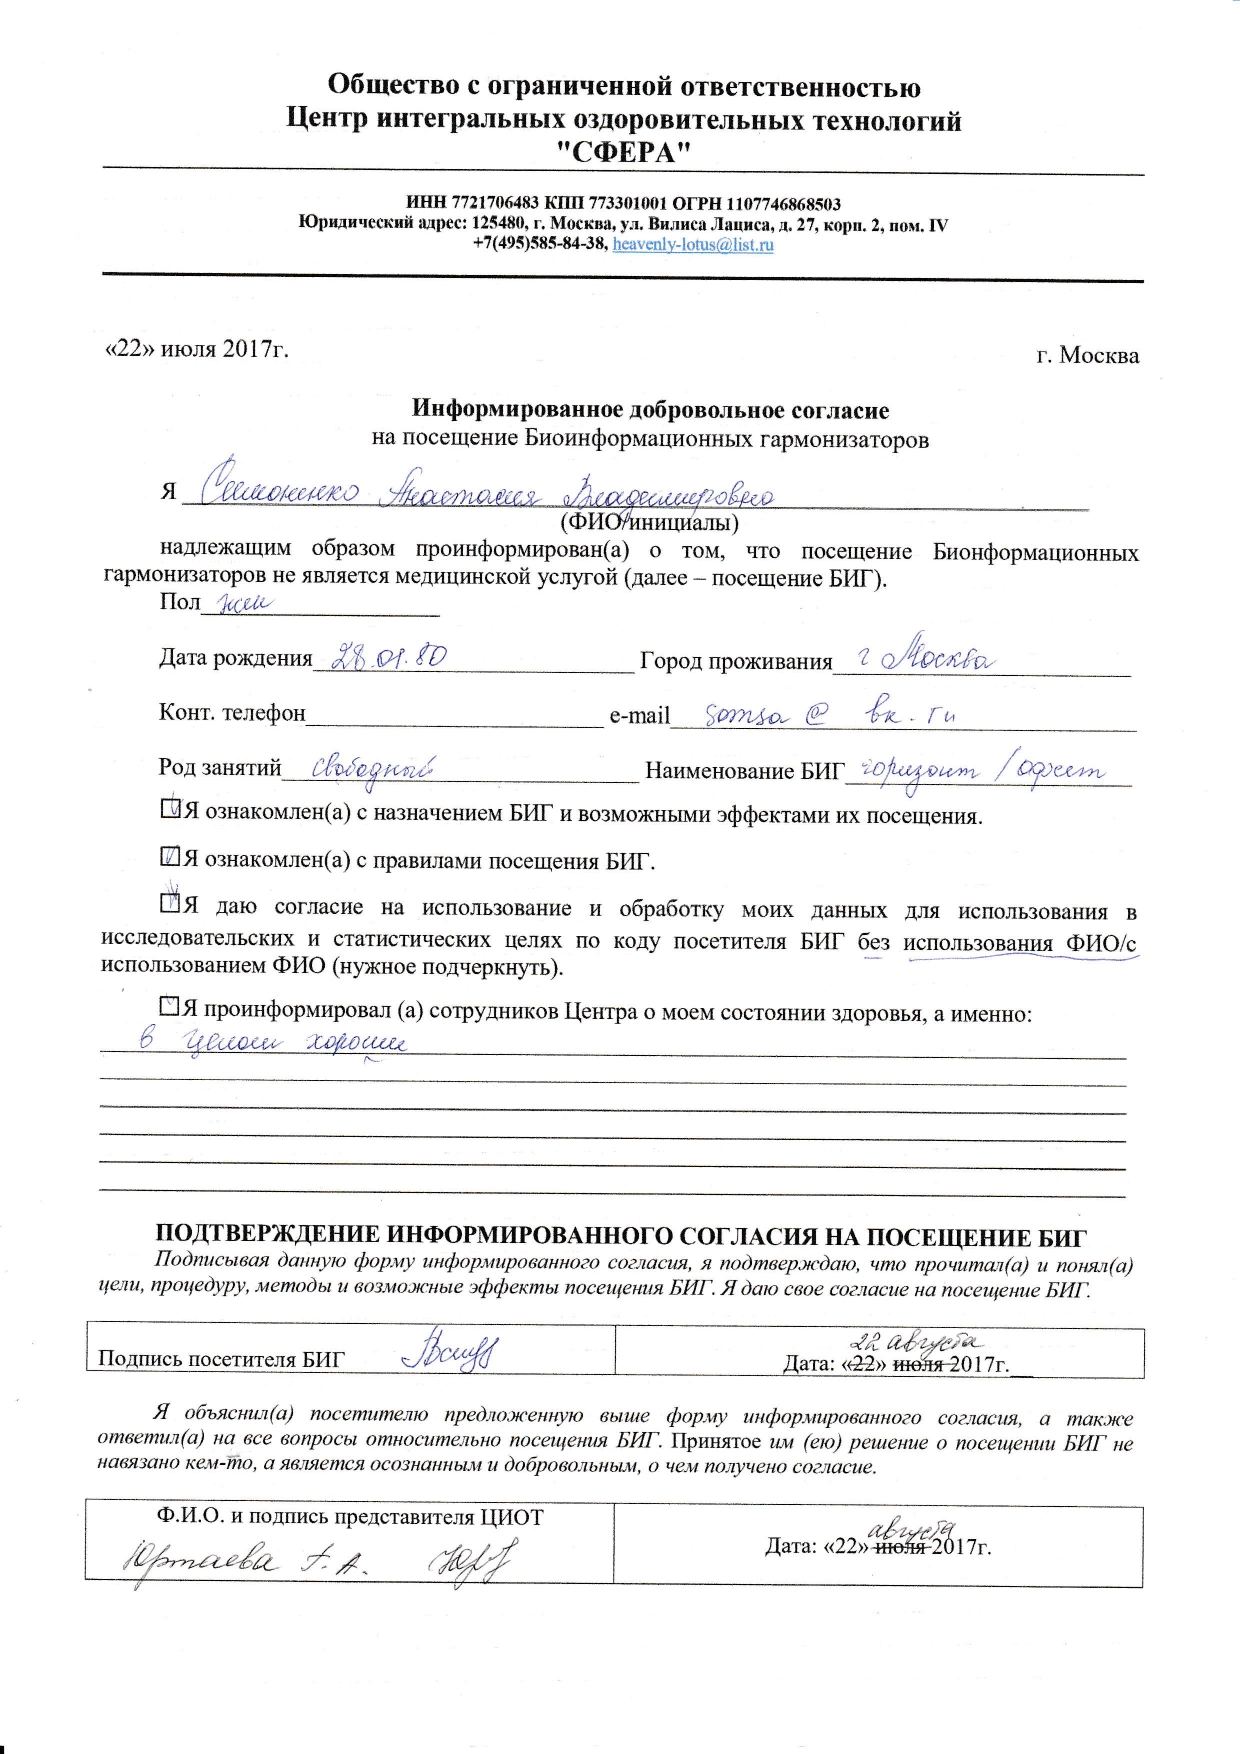 Общество с ограниченной ответственностью
Центр интегральных оздоровительных технологий
"СФЕРА"
ИНН 7721706483 КПП 773301001 ОГРН 1107746868503
Юридический адрес: 125480, г. Москва, ул. Вилиса Лациса, д. 27, корп. 2, пом. IV
+7(495)585-84-38, heavenly-lotus@list.ru
«22» июля 2017г. г. Москва
Информированное добровольное согласие
на посещение Биоинформационных гармонизаторов
Я Симоненко Анастасия Владимировна
(ФИО/инициалы)
надлежащим образом проинформирован(а) о том, что посещение Бионформационных
гармонизаторов не является медицинской услугой (далее – посещение БИГ).
Пол жен
Дата рождения 28.01.80 Город проживания г Москва
Конт. телефон e-mail somsa@vk.ru
Род занятий свободный Наименование БИГ горизонт /
Я ознакомлен(а) с назначением БИГ и возможными эффектами их посещения.
Я ознакомлен(а) с правилами посещения БИГ.
Я даю согласие на использование и обработку моих данных для использования в
исследовательских и статистических целях по коду посетителя БИГ без использования ФИО/с
использованием ФИО (нужное подчеркнуть).
Я проинформировал (а) сотрудников Центра о моем состоянии здоровья, а именно:
в целом хорошии
ПОДТВЕРЖДЕНИЕ ИНФОРМИРОВАННОГО СОГЛАСИЯ НА ПОСЕЩЕНИЕ БИГ
Подписывая данную форму информированного согласия, я подтверждаю, что прочитал(а) и понял(а)
цели, процедуру, методы и возможные эффекты посещения БИГ. Я даю свое согласие на посещение БИГ.
22 августа
Подпись посетителя БИГ Дата: «22» июля 2017г.
Я объяснил(а) посетителю предложенную выше форму информированного согласия, а также
ответил(а) на все вопросы относительно посещения БИГ. Принятое им (ею) решение о посещении БИГ не
навязано кем-то, а является осознанным и добровольным, о чем получено согласие.
Ф.И.О. и подпись представителя ЦИОТ
августа
Дата: «22» июля 2017г.
Юртаева Г.А.